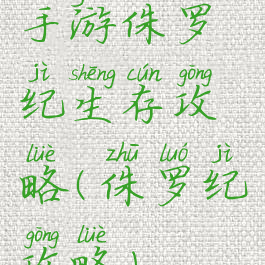 手游侏罗
jì shēng cún gōng
纪生存攻
lüè zhū luó jì
略(侏罗纪
gōng lüè
攻略)